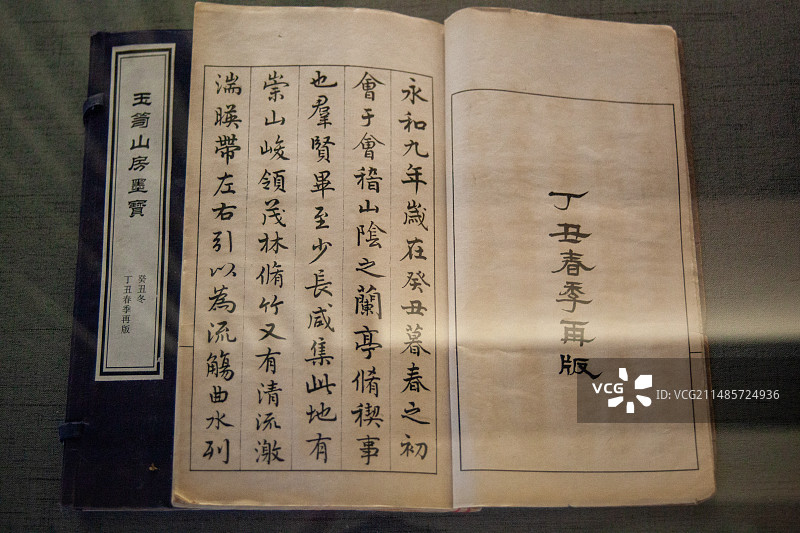 丁丑春季再版
永和九年歲在癸丑暮春之初
會于會稽山陰之蘭亭脩稧事
也羣賢畢至少長咸集此地有
崇山峻領茂林脩竹又有清流激
湍暎帶左右引以為流觴曲水列
玉笥山房墨寶
癸丑冬
丁丑春季再版
VCG
VCG211485724936